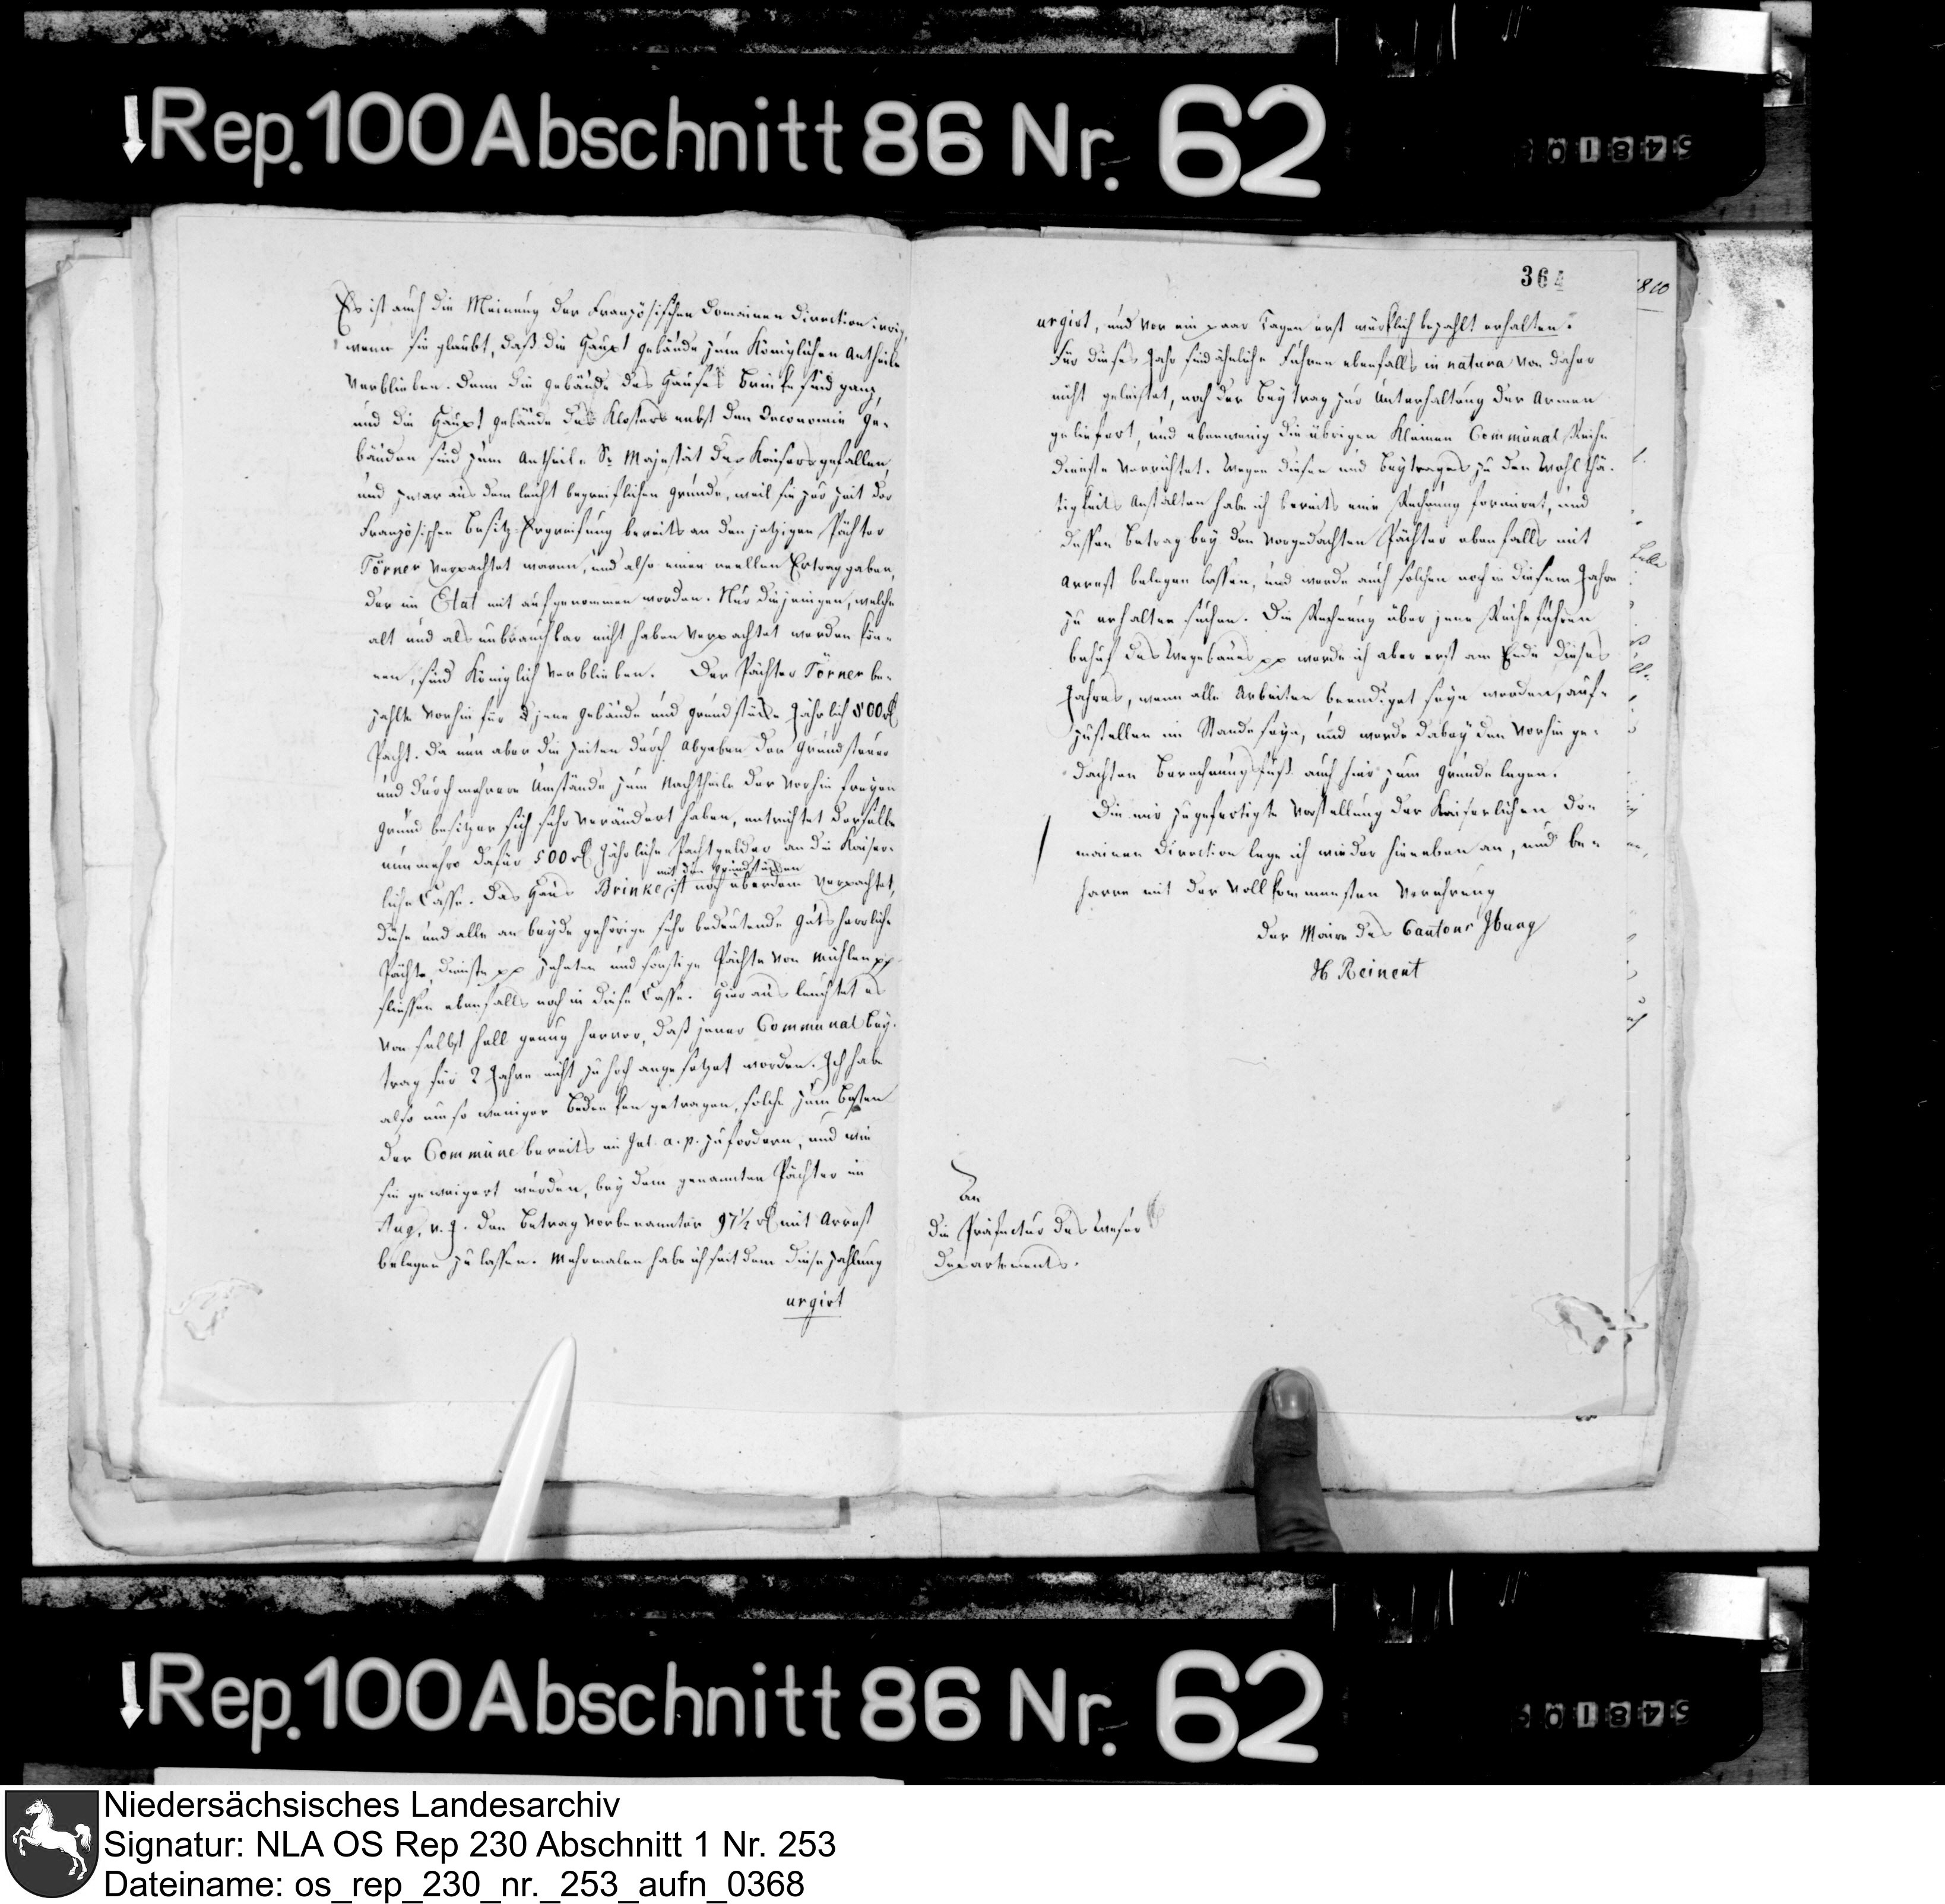 Rep. 100 Abschnitt 86 Nr. 62
Es ist auch die Meinung der Französischen Domainen Direction irrig,
wenn sie glaubt, daß die Haupt Gebäude zum Königlichen Antheile
verblieben. Denn die Gebäude des Hauses Brinke sind ganz,
und die Haupt Gebäude des Klosters nebst den Oeconomie Ge-
bäuden sind zum Antheile Sr Majestät des Kaisers gefallen,
und zwar aus dem leicht begreiflichen Grunde, weil sie zur Zeit der
Französischen Besitz-Ergreifung bereits an den jetzigen Pächter
Törner verpachtet waren, und also einen reellen Ertrag gaben,
der im Etat mit aufgenommen worden. Nur diejenigen, welche
alt und als unbrauchbar nicht haben verpachtet werden kön-
nen, sind Königlich verblieben. Der Pächter Törner be-
zahlte vorhin für jene Gebäude und Grundstücke Jährlich 800 rl
Pacht. Da nun aber die Zeiten durch Abgaben der Grundsteuer
und durch mehrere Umstände zum Nachtheile der vorhin freyen
Grund besitzer sich sehr verändert haben, entrichtet derselbe
nunmehro dafür 500 rl Jährliche Pachtgelder an die Kaiser-
mit den Grundstücken
liche Casse. Das Haus Brinke ist noch überdem verpachtet,
diese und alle an beyde gehörige sehr bedeutende Gutsherrliche
Pächte, Dienste pp Zehnten und sonstige Pächte von Mühlen pp
fliessen ebenfalls noch in diese Casse. Hieraus leuchtet es
von selbst hell genug hervor, daß jener Communal Bey-
trag für 2 Jahre nicht zu hoch angesetzet worden. Ich habe
also um so weniger Bedenken getragen, solche zum Besten
der Commüne bereits im Jul. a. p. zu fordern, und wie
sie geweigert wurden, bey dem genannten Pächter im
Aug. v. J. den Betrag vorbenannter 97½ rl mit Arrest
belegen zu lassen. Mehrmalen habe ich seit dem diese Zahlung
urgirt
364
1810
urgirt, und vor ein paar Tagen erst würklich bezahlt erhalten.
Für dieses Jahr sind ähnliche Fuhren ebenfalls in natura von daher
nicht geleistet, noch der Beytrag zur Unterhaltung der Armen
geliefert, und ebenwenig die übrigen kleinen Communal Reihe
dienste verrichtet. Wegen dieser und Beytrages zu den Wohlthä-
tigkeits Anstalten habe ich bereits eine Rechnung formiret, und
dessen Betrag bey den vorgedachten Pächter ebenfalls mit
Arrest belegen lassen, und werde auch solchen noch in diesem Jahre
zu erhalten suchen. Die Rechnung über jene Reihefuhren
behuf des Wegebaues pp werde ich aber erst am Ende dieses
Jahres, wenn alle Arbeiten beendiget seyn werden, auf-
zustellen im Stande seyn, und werde dabey den vorhin ge-
dachten Berechnungsfuß auch hier zum Grunde legen.
Die mir zugefertigte Vorstellung der Kaiserlichen Do-
mainen Direction lege ich wieder hieneben an, und be-
harre mit der vollkommensten Verehrung
Der Maire des Cantons Iburg
H Reinert
An
die Präfectur des Weser
Departements.
Rep. 100 Abschnitt 86 Nr. 62
Niedersächsisches Landesarchiv
Signatur: NLA OS Rep 230 Abschnitt 1 Nr. 253
Dateiname: os_rep_230_nr._253_aufn_0368